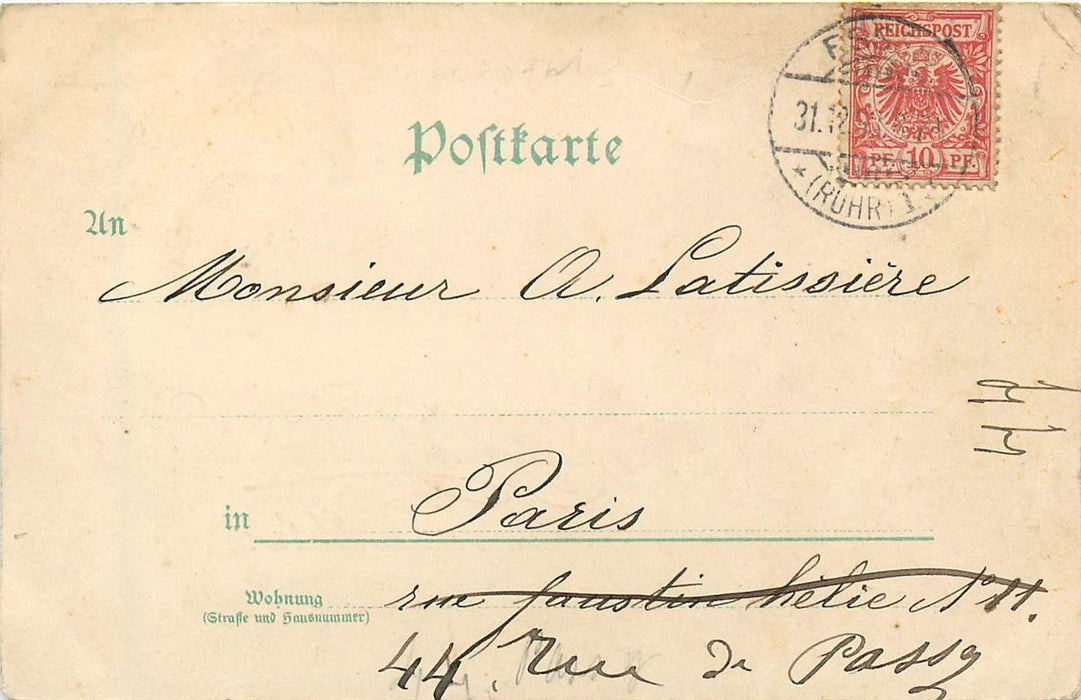 REICHSPOST
PF. 10 PF.
31.12.9
★ (RUHR) 1.
Postkarte
An
Monsieur A. Latissière
in Paris
Wohnung
(Straße und Hausnummer)
rue faustin hélie N° 11.
44, Rue de Passy
44